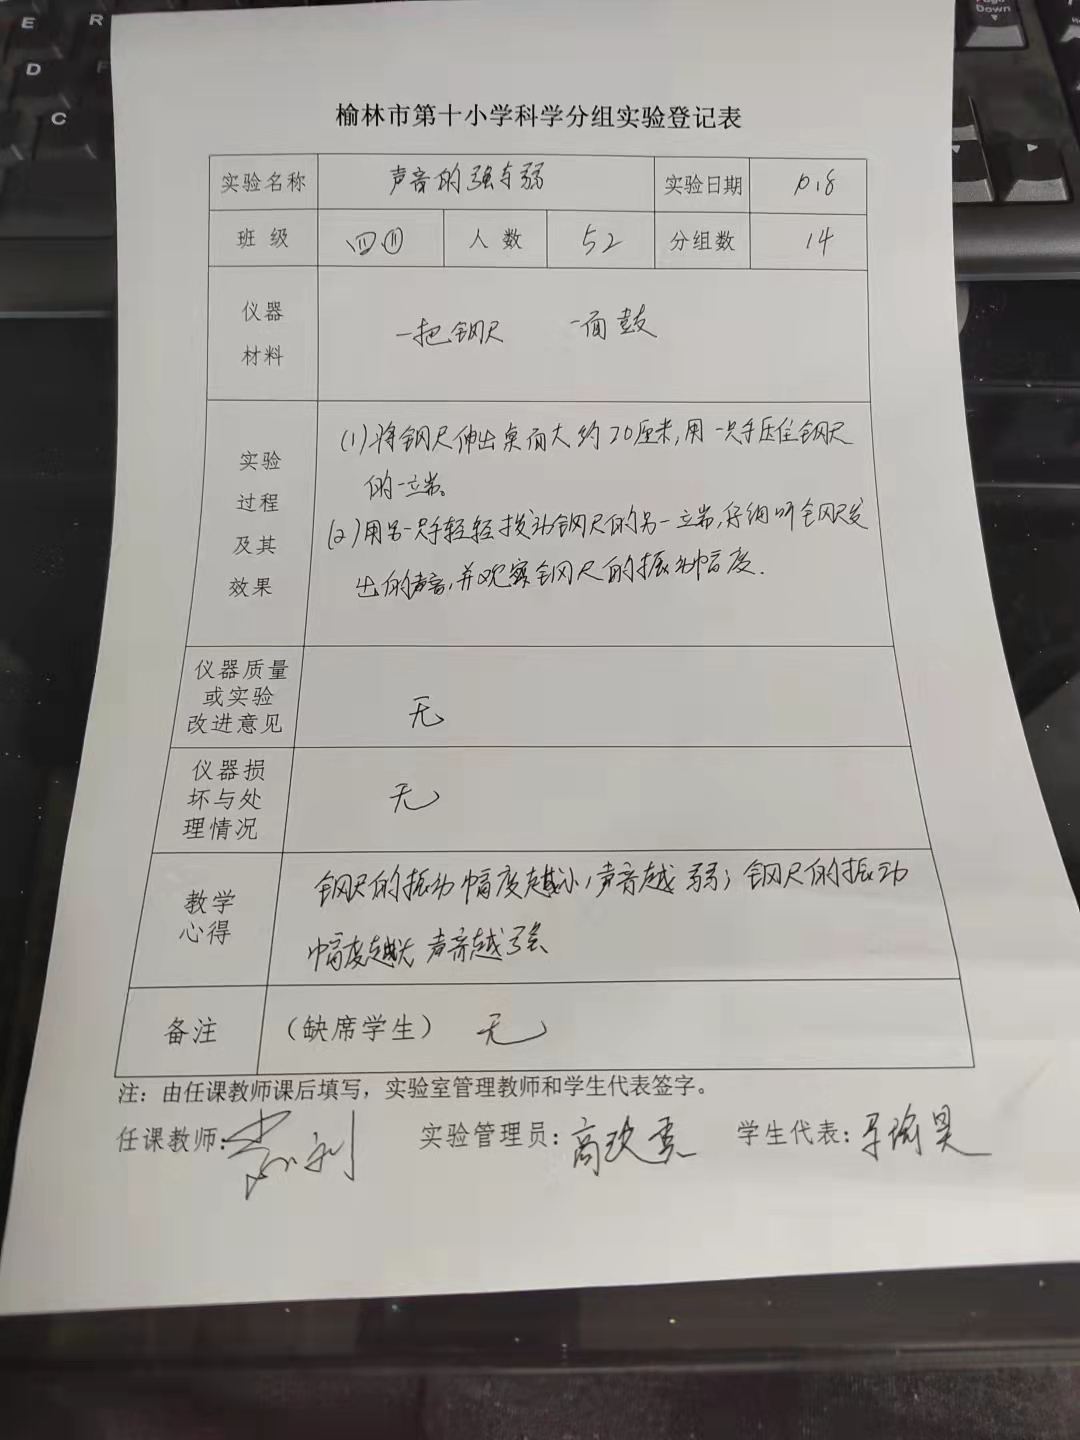 榆林市第十小学科学分组实验登记表
实验名称 声音的强与弱 实验日期 10.8
班级 四⑪ 人数 52 分组数 14
仪器
材料
一把钢尺 一面鼓
实验
过程
及其
效果
(1)将钢尺伸出桌面大约20厘米,用一只手压住钢尺
的一端。
(2)用另一只手轻轻拨动钢尺的另一端,仔细听钢尺发
出的声音,并观察钢尺的振动幅度.
仪器质量
或实验
改进意见
无
仪器损
坏与处
理情况
无
教学
心得
钢尺的振动幅度越小,声音越弱;钢尺的振动
幅度越大声音越强
备注 (缺席学生) 无
注：由任课教师课后填写，实验室管理教师和学生代表签字。
任课教师: 实验管理员: 学生代表:
E R
D F
C
Page
Down